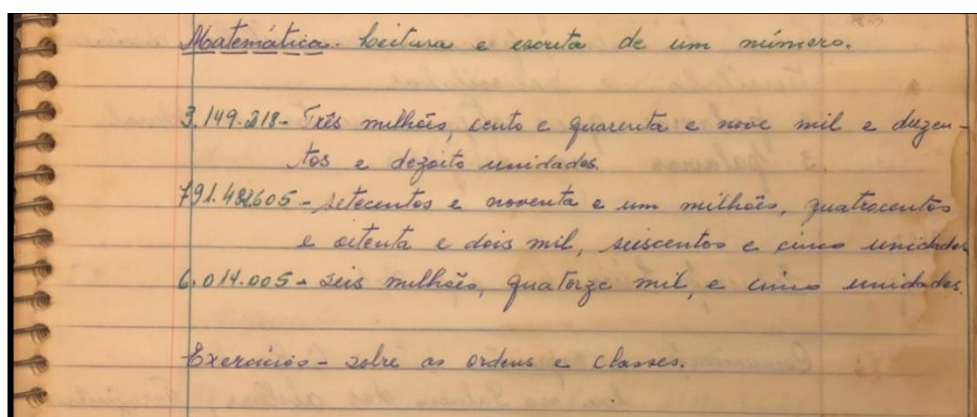 Matemática. Leitura e escrita de um número.
3.149.218 - Três milhões, cento e quarenta e nove mil e duzen-
tos e dezoito unidades.
791.482.605 - setecentos e noventa e um milhões, quatrocentos
e oitenta e dois mil, seiscentos e cinco unidades
6.014.005 - seis milhões, quatorze mil, e cinco unidades.
Exercícios - sobre as ordens e classes.